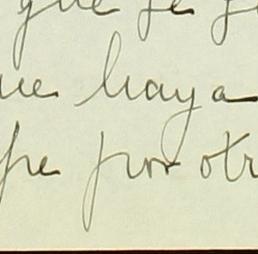 que se
ue haya
por otr